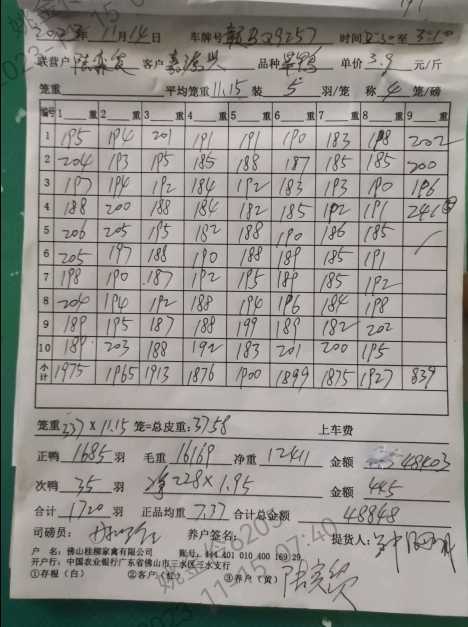 2023年 11月 14日 车牌号 赣 9257 时间 至
联营户 客户 品种 单价 3.9 元/斤
笼重 平均笼重 11.15 装 5 羽/笼 称 4 笼/磅
编号 1 重 2 重 3 重 4 重 5 重 6 重 7 重 8 重 9 重
1 195 194 201 191 191 190 183 198 202
2 204 193 195 185 188 187 185 185 200
3 197 194 192 184 192 183 193 190 196
4 188 200 188 184 182 185 192 191 241
5 206 205 195 182 188 190 186 185
6 205 197 188 190 188 189 185 191
7 198 190 187 192 195 189 185 192
8 204 194 192 188 194 196 184 198
9 189 195 187 188 199 189 182 202
10 189 203 188 192 183 201 200 195
小计 1975 1965 1913 1876 1900 1899 1875 1927 839
笼重 337 X 11.15 笼=总皮重: 3758 上车费
正鸭 1685 羽 毛重 16169 净重 12411 金额 48403
次鸭 35 羽 净 228 X 1.95 金额 445
合计 1720 羽 正品均重 7.37 合计总金额 48848
司磅员: 养户签名: 提货人:
户 名: 佛山桂柳家禽有限公司 账号: 444 401 010 400 169 29
开户行: 中国农业银行广东省佛山市三水区三水支行
①存根(白) ②客户(红) ③养户(黄)